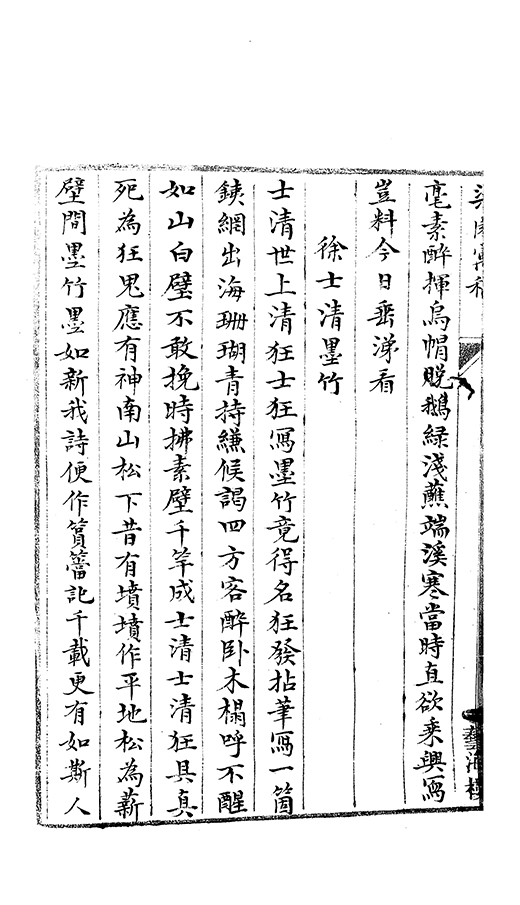 毫素醉揮烏帽脫鵝綠淺蘸端溪寒當時直欲乘興寫
豈料今日垂涕看
徐士清墨竹
士清世上清狂士狂寫墨竹竟得名狂發拈筆寫一箇
鐵網出海珊瑚青持縑候謁四方客醉卧木榻呼不醒
如山白璧不敢挽時拂素壁千竿成士清士清狂具真
死為狂鬼應有神南山松下昔有墳墳作平地松為薪
壁間墨竹墨如新我詩便作篔簹記千載更有如斯人